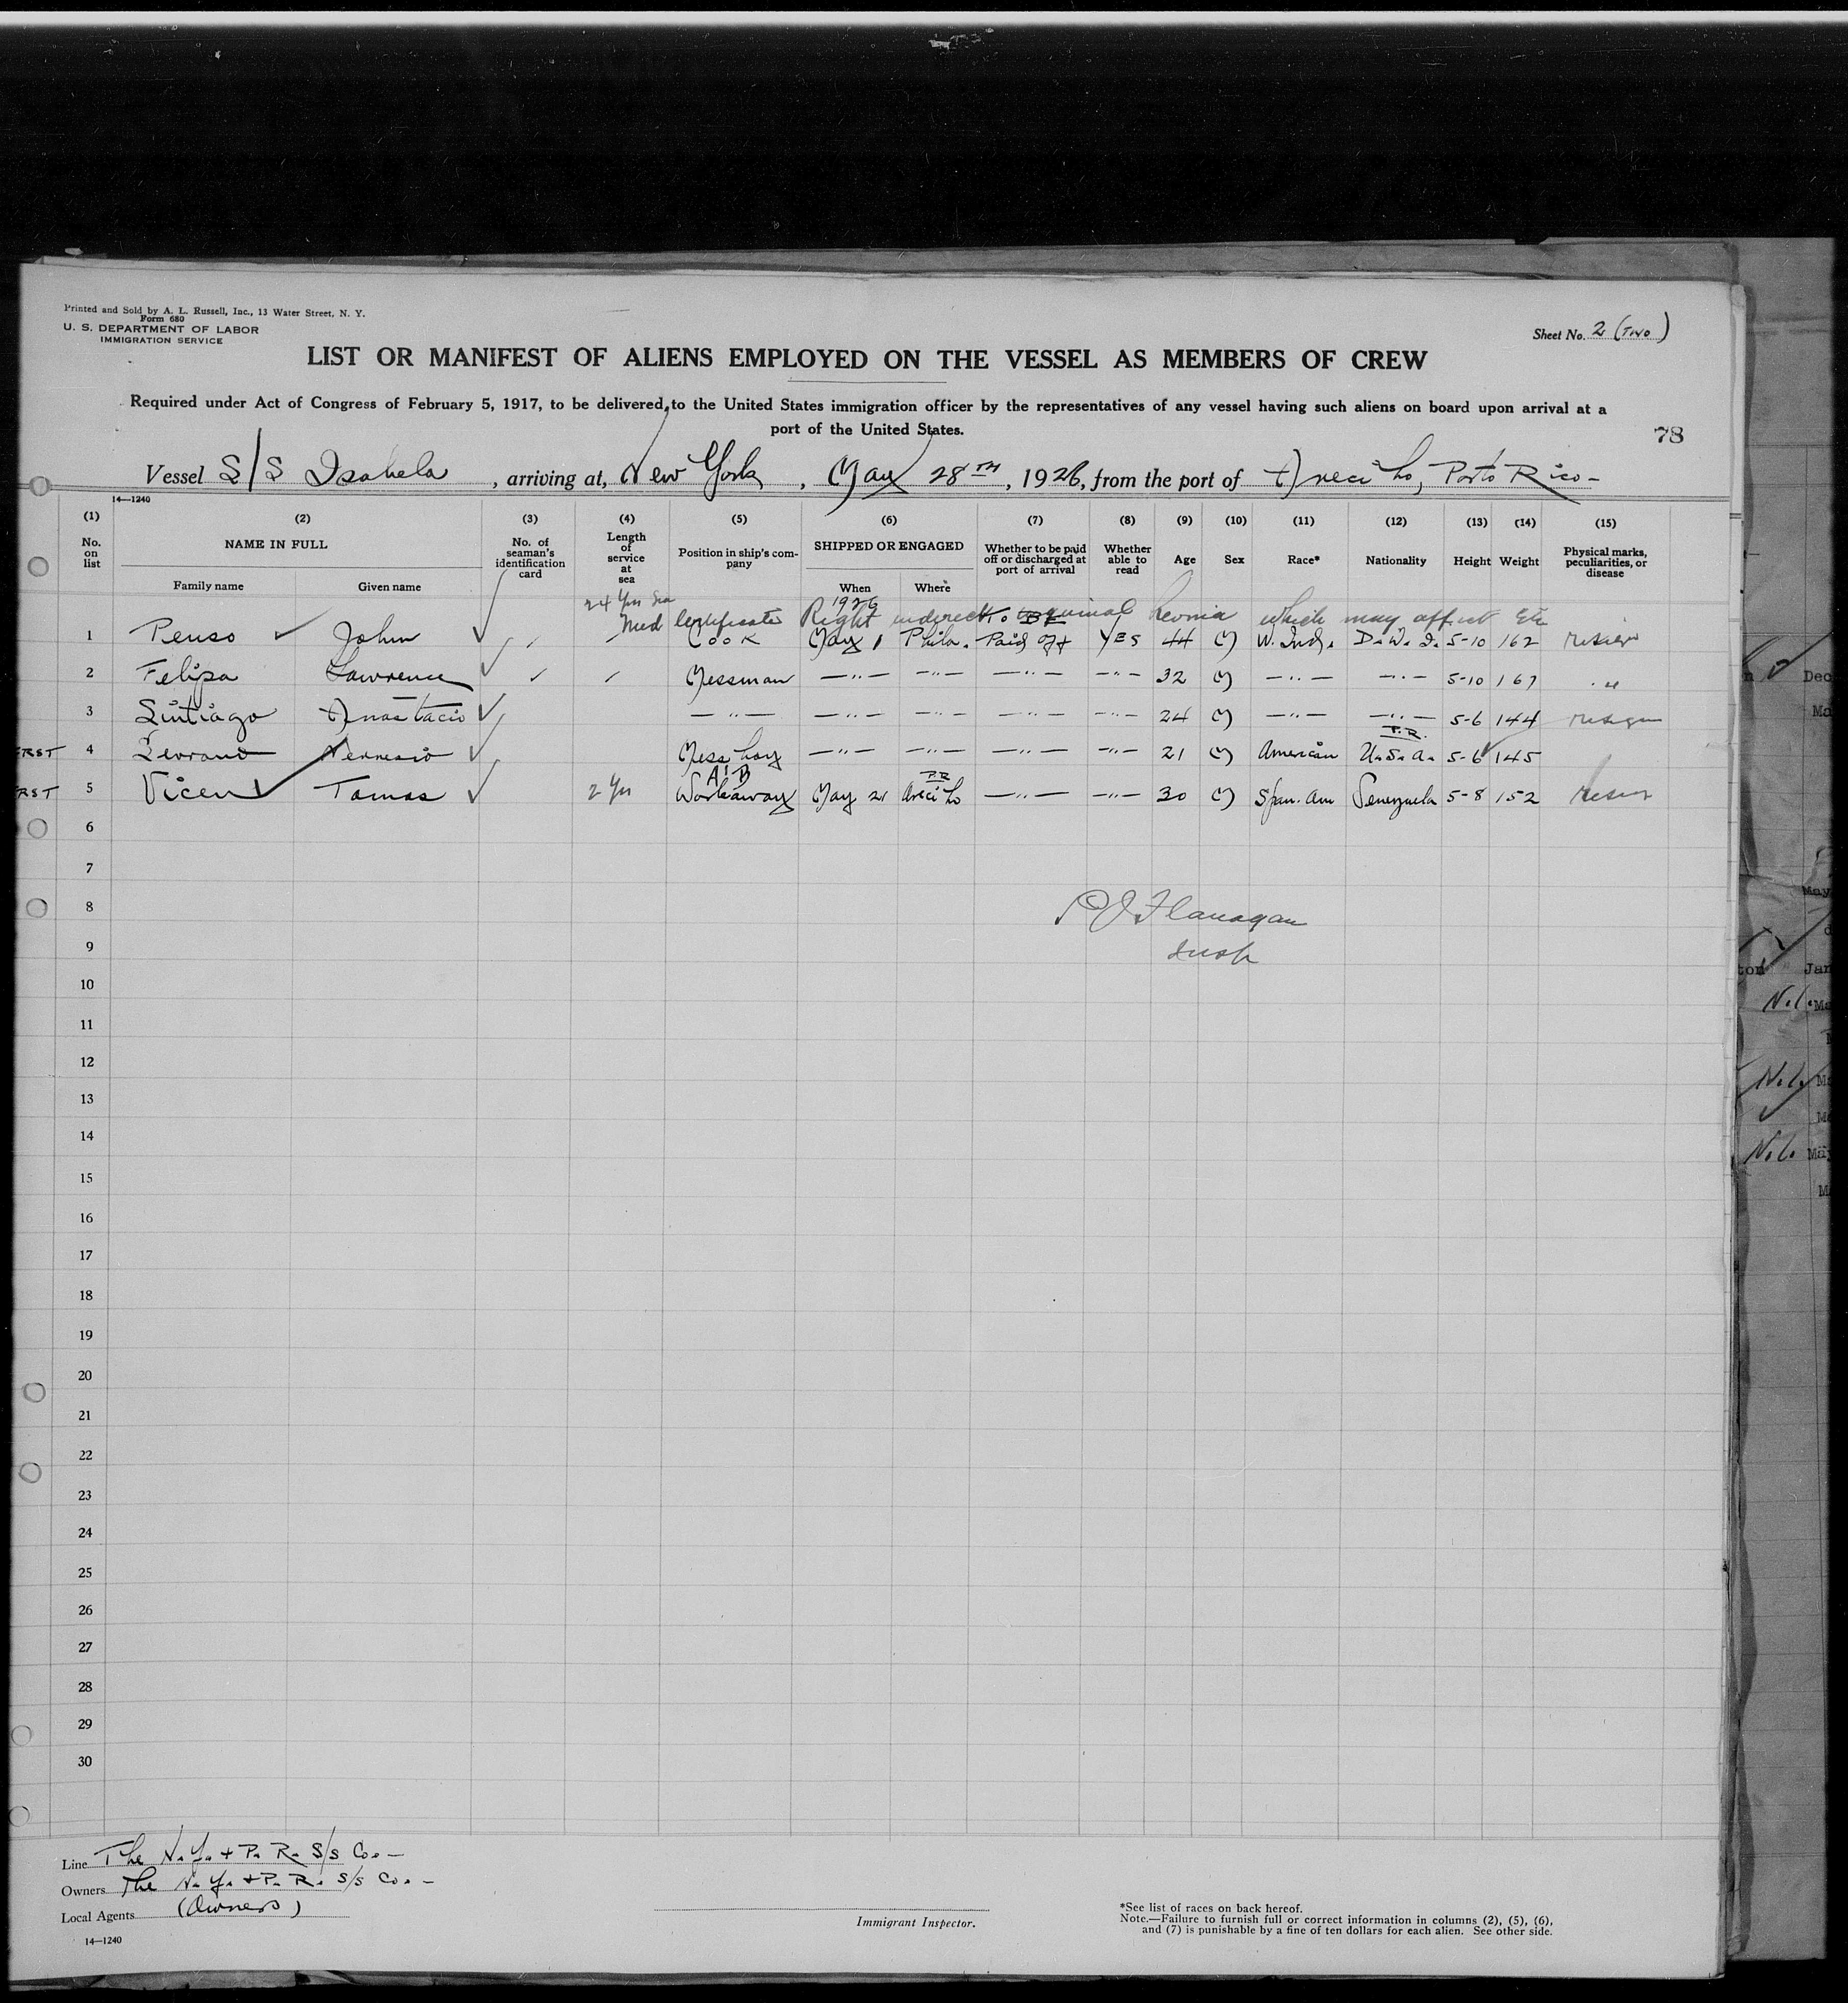 Printed and Sold by A. L. Russell, Inc., 13 Water Street, N. Y.
Form 680
U. S. DEPARTMENT OF LABOR
IMMIGRATION SERVICE
Sheet No. 2 (Two)
LIST OR MANIFEST OF ALIENS EMPLOYED ON THE VESSEL AS MEMBERS OF CREW
Required under Act of Congress of February 5, 1917, to be delivered to the United States immigration officer by the representatives of any vessel having such aliens on board upon arrival at a
port of the United States.
78
Vessel S/S Isabela, arriving at, New York, May 28TH, 1926, from the port of Arecibo, Porto Rico-
14—1240
(1) (2) (3) (4) (5) (6) (7) (8) (9) (10) (11) (12) (13) (14) (15)
No. on list NAME IN FULL Family name Given name No. of seaman's identification card Length of service at sea Position in ship's company SHIPPED OR ENGAGED When Where Whether to be paid off or discharged at port of arrival Whether able to read Age Sex Race* Nationality Height Weight Physical marks, peculiarities, or disease
24 Yrs Sea 1926 To BE
Med Certificate Right indirect inguinal hernia which may affect Etc
1 Penso John Cook May 1 Phila. Paid off YES 44 M W. Ind. D.W.I. 5-10 162
2 Felipa Lawrence Messman —"— —"— —"— —"— 32 M —"— —"— 5-10 167 "
3 Sintiago Anastacio —"— —"— —"— —"— —"— 24 M —"— —"— 5-6 144
P.R.
4 Nemesio Mess boy —"— —"— —"— —"— 21 M American U.S.A. 5-6 145
AB P.R
5 Vicent Tomas 2 Yrs Workaway May 21 Arecibo —"— —"— 30 M Span. Am Venezuela 5-8 152
6
7
8
P J Flanagan
9
Insp
10
11
12
13
14
15
16
17
18
19
20
21
22
23
24
25
26
27
28
29
30
Line The N.Y. + P. R. S/S Co. —
Owners The N.Y. + P. R. S/S Co. —
Local Agents (Owners)
14—1240
Immigrant Inspector.
*See list of races on back hereof.
Note.—Failure to furnish full or correct information in columns (2), (5), (6),
and (7) is punishable by a fine of ten dollars for each alien. See other side.